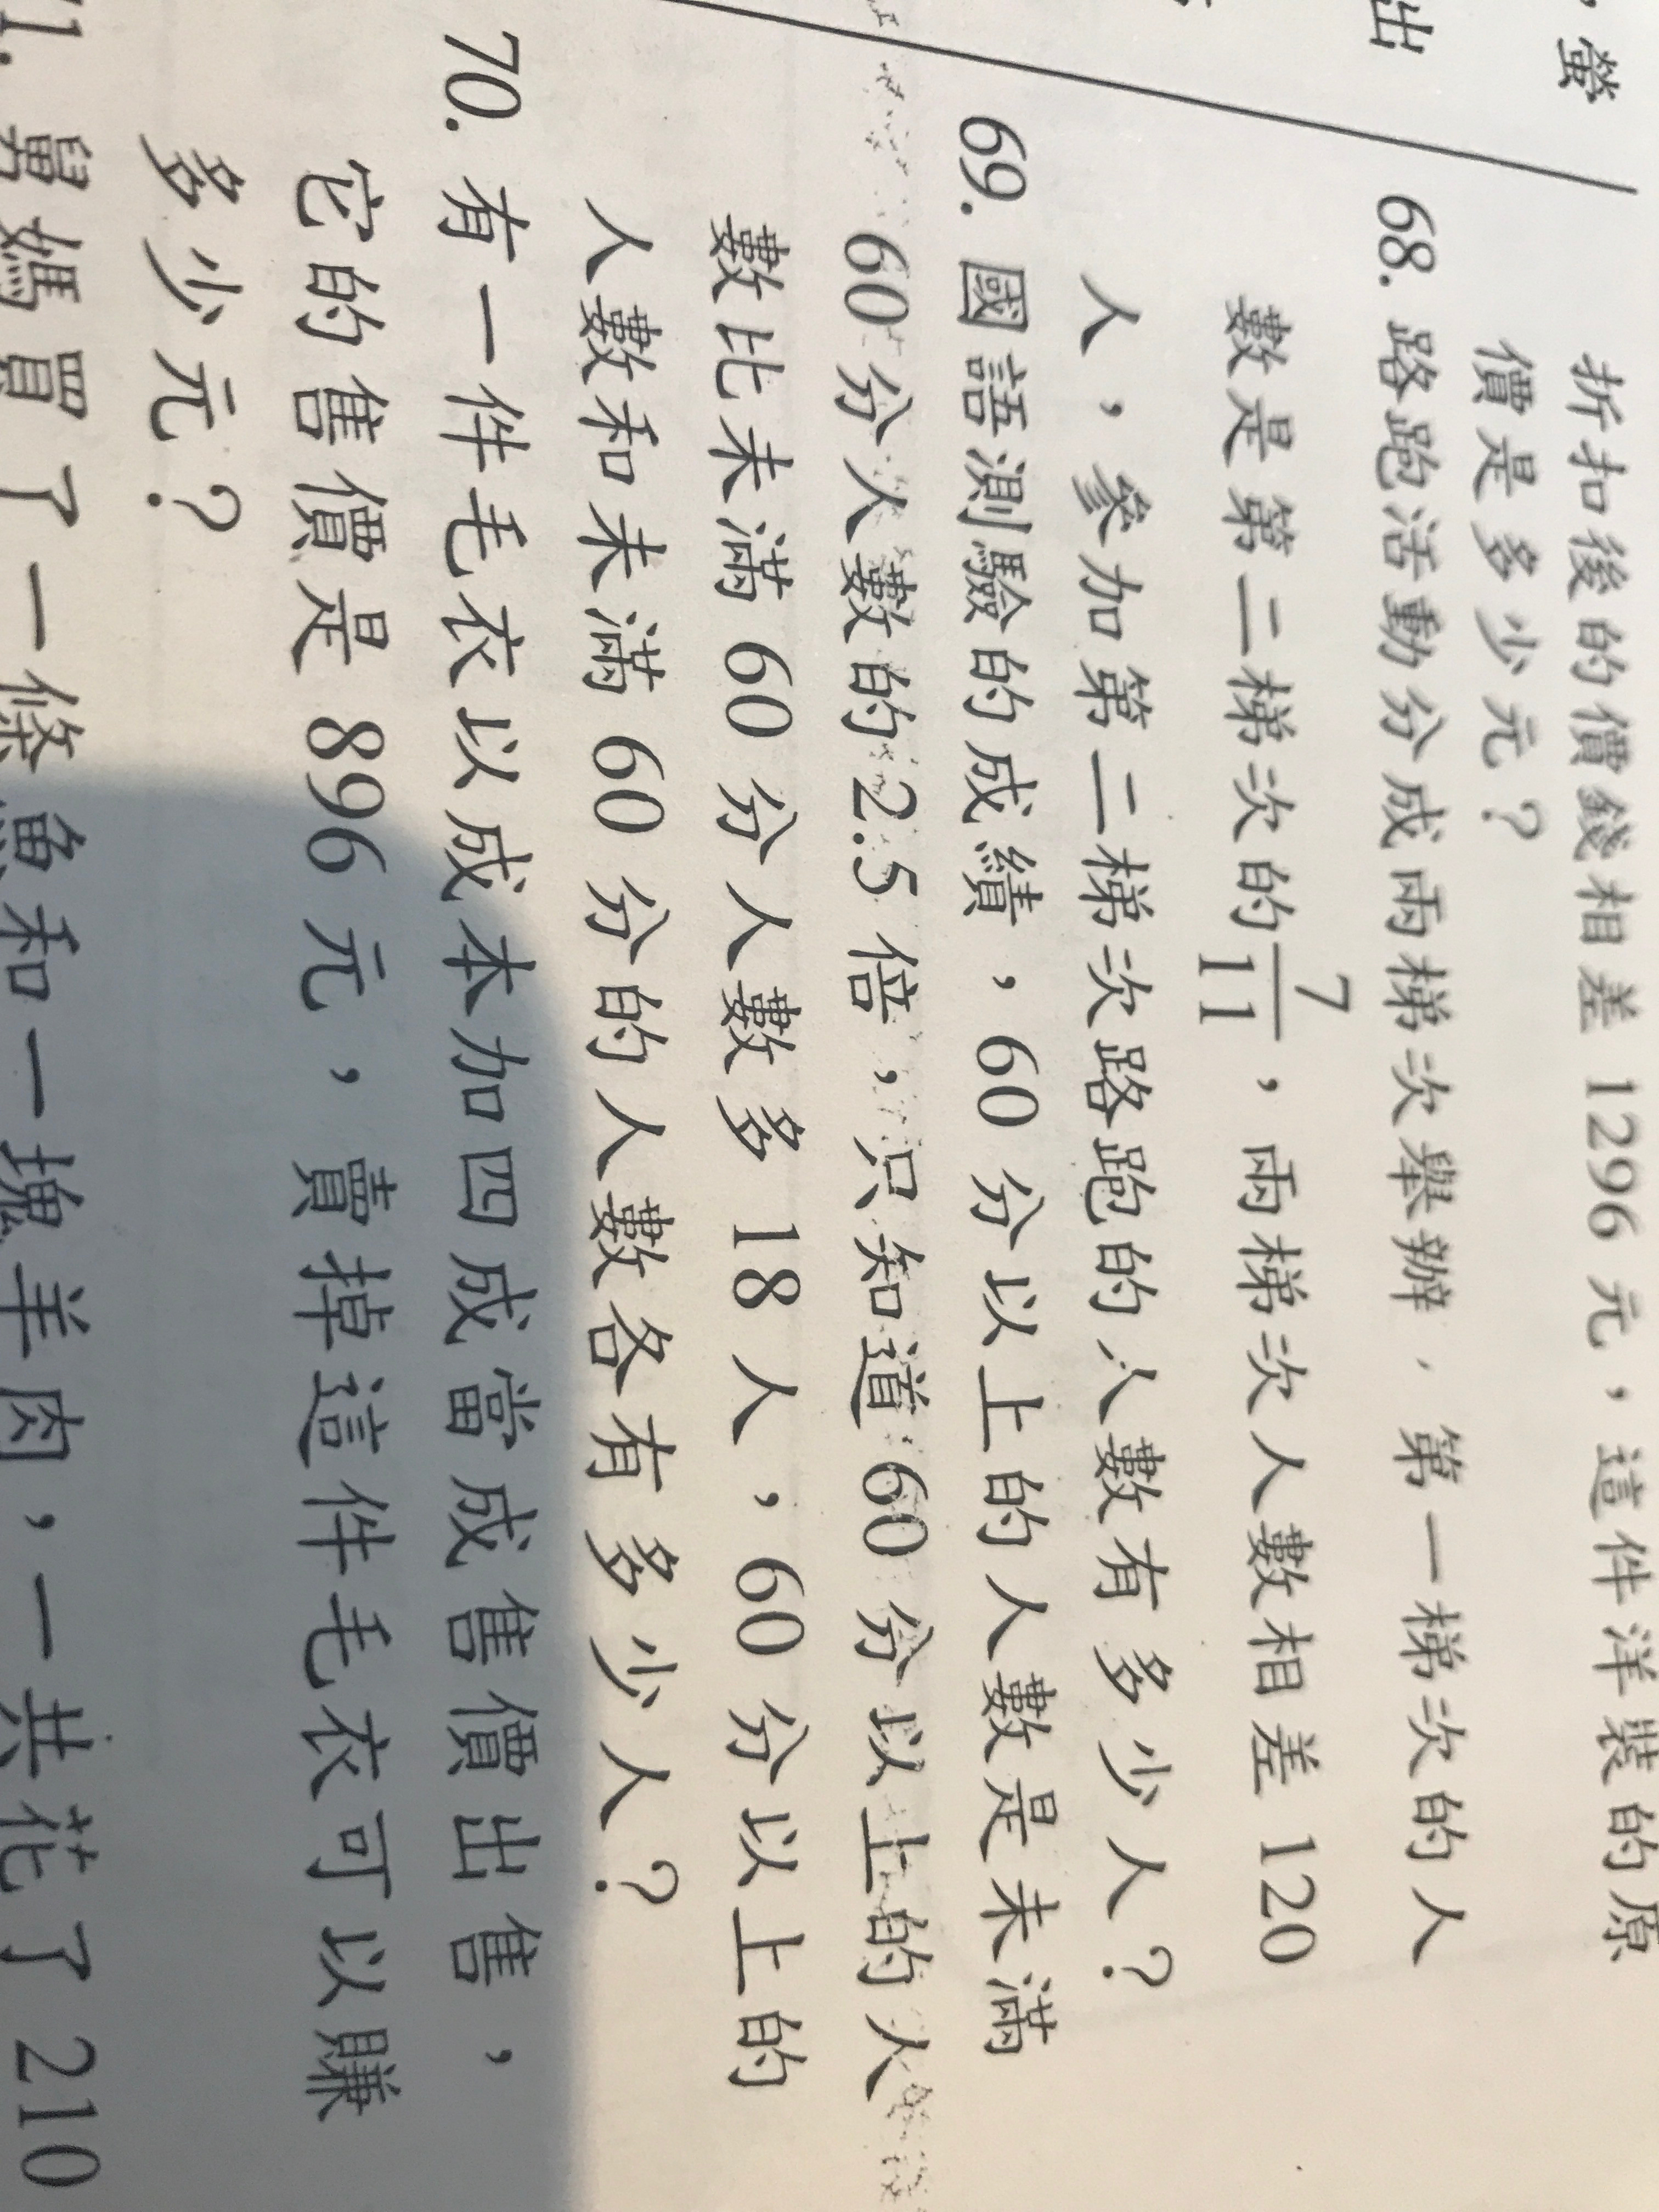 ，螢
出
折扣後的價錢相差 1296 元，這件洋裝的原
價是多少元？
68. 路跑活動分成兩梯次舉辦，第一梯次的人
數是第二梯次的7/11，兩梯次人數相差 120
人，參加第二梯次路跑的人數有多少人？
69. 國語測驗的成績，60 分以上的人數是未滿
60 分人數的 2.5 倍，只知道 60 分以上的人
數比未滿 60 分人數多 18 人，60 分以上的
人數和未滿 60 分的人數各有多少人？
70. 有一件毛衣以成本加四成當成售價出售，
它的售價是 896 元，賣掉這件毛衣可以賺
多少元？
71. 舅媽買了一條魚和一塊羊肉，一共花了 210